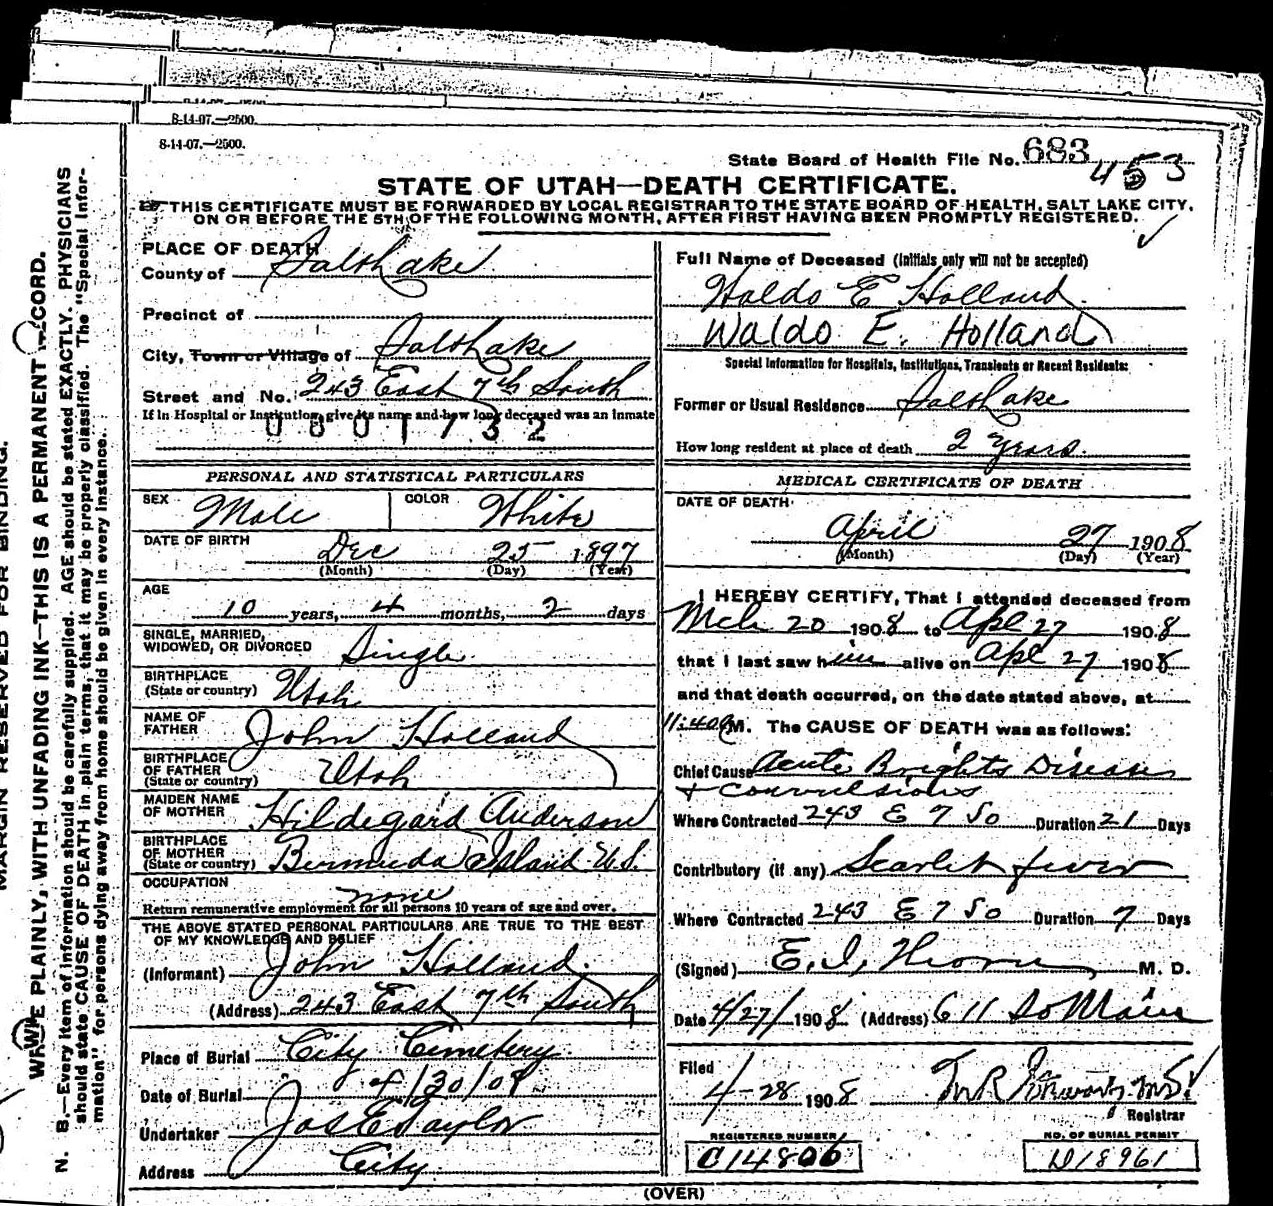 8-14-07.—2500.
8-14-07.—2500.
State Board of Health File No. 683 453
STATE OF UTAH—DEATH CERTIFICATE.
THIS CERTIFICATE MUST BE FORWARDED BY LOCAL REGISTRAR TO THE STATE BOARD OF HEALTH, SALT LAKE CITY,
ON OR BEFORE THE 5TH OF THE FOLLOWING MONTH, AFTER FIRST HAVING BEEN PROMPTLY REGISTERED.
MARGIN RESERVED FOR BINDING.
WRITE PLAINLY, WITH UNFADING INK—THIS IS A PERMANENT RECORD.
N. B.—Every item of information should be carefully supplied. AGE should be stated EXACTLY. PHYSICIANS
should state CAUSE OF DEATH in plain terms, that it may be properly classified. The "Special Infor-
mation" for persons dying away from home should be given in every instance.
PLACE OF DEATH
County of Salt Lake
Precinct of
City, Town or Village of Salt Lake
Street and No. 243 East 7th South
If in Hospital or Institution, give its name and how long deceased was an inmate
0801732
PERSONAL AND STATISTICAL PARTICULARS
SEX Male COLOR White
DATE OF BIRTH Dec 25 1897
(Month) (Day) (Year)
AGE
10 years, 4 months, 2 days
SINGLE, MARRIED,
WIDOWED, OR DIVORCED Single
BIRTHPLACE
(State or country) Utah
NAME OF
FATHER John Holland
BIRTHPLACE
OF FATHER
(State or country) Utah
MAIDEN NAME
OF MOTHER Hildegard Anderson
BIRTHPLACE
OF MOTHER
(State or country) Bermuda Island U.S.
OCCUPATION none
Return remunerative employment for all persons 10 years of age and over.
THE ABOVE STATED PERSONAL PARTICULARS ARE TRUE TO THE BEST
OF MY KNOWLEDGE AND BELIEF
(Informant) John Holland
(Address) 243 East 7th South
Place of Burial City Cemetery
Date of Burial 4/30/08
Undertaker Jos E Taylor
Address City
Full Name of Deceased (Initials only will not be accepted)
Waldo E Holland
Waldo E. Holland
Special Information for Hospitals, Institutions, Transients or Recent Residents:
Former or Usual Residence Salt Lake
How long resident at place of death 2 years.
MEDICAL CERTIFICATE OF DEATH
DATE OF DEATH
April 27 1908
(Month) (Day) (Year)
I HEREBY CERTIFY, That I attended deceased from
Mch 20 1908 to Apl 27 1908
that I last saw him alive on Apl 27 1908
and that death occurred, on the date stated above, at
11:40 a M. The CAUSE OF DEATH was as follows:
Chief Cause Acute Brights Disease
+ convulsions
Where Contracted 243 E 7 So Duration 21 Days
Contributory (if any) Scarlet fever
Where Contracted 243 E 7 So Duration 7 Days
(Signed) E. I. M. D.
Date 4/27/1908 (Address) 611 So Main
Filed
4-28 1908
Registrar
REGISTERED NUMBER NO. OF BURIAL PERMIT
C14806 D18961
(OVER)